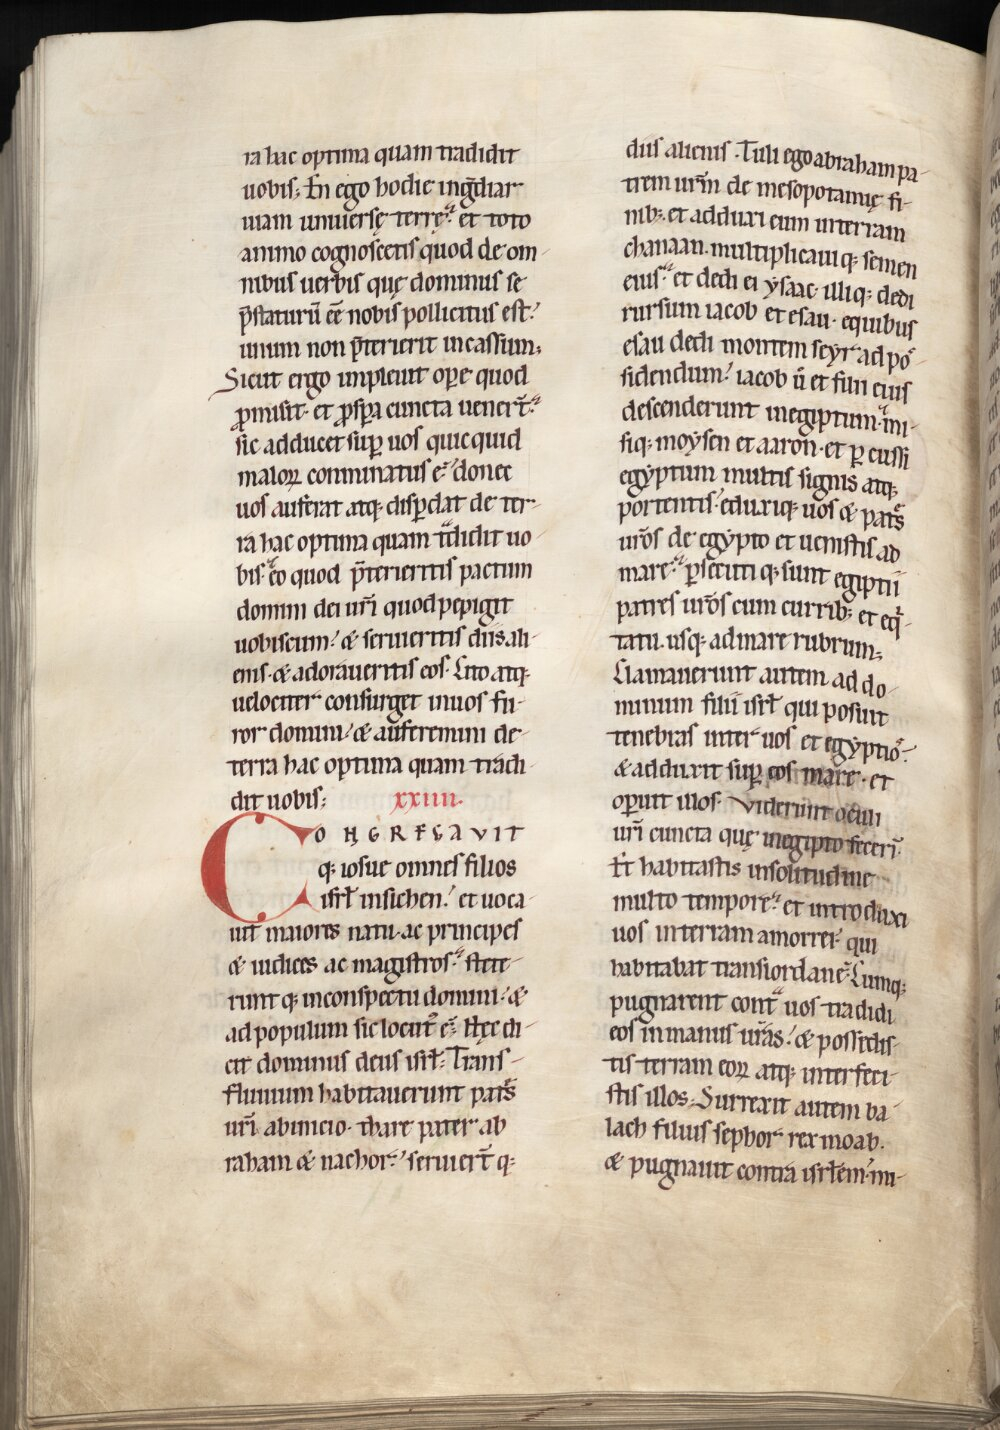 ra hac optima quam tradidit
uobis; En ego hodie ingr̄diar
uiam uniuersę terrę. et toto
animo cognoscetis quod de om-
nibus uerbis quę dominus se
p̄staturū eē nobis pollicitus est.
unum non p̄terierit incassum;
Sicut ergo impleuit oꝑe quod
ꝓmisit. et ꝓsꝑa cuncta uenert̄.
sic adducet suꝑ uos quicquid
maloꝝ comminatus ē. donec
uos auferat atq; disꝑdat de ter-
ra hac optima quam tͣdidit uo-
bis. eo quod p̄terieritis pactum
domini dei uri̅ quod pepigit
uobiscum. & seruieritis diis ali-
enis. & adoraueritis eos. Cito atq;
uelociter consurget in uos fu-
ror domini. & auferemini de
terra hac optima quam tradi-
dit uobis; xxiiii.
CONGREGAVIT
q; iosue omnes filios
isrł in sichen. et uoca-
uit maiores natu. ac principes
& iudices ac magistros. stete-
runt q; in conspectu domini. &
ad populum sic locut᷒ ē. Hęc di-
cit dominus deus isrł. Trans
fluuium habitauerunt patr̄s
uri̅ ab inicio. thare pater ab-
raham & nachor. seruiert̄ q;
diis alienis. Tuli ego abraham pa-
trem urm̅ de mesopotamię fi-
nib;. et adduxi eum in terram
chanaan. multiplicaui q; semen
eius. et dedi ei ysaac. illi q; dedi
rursum iacob et esau. e quibus
esau dedi montem seyr ad pos-
sidendum. iacob ū et filii eius
descenderunt in egiptum. mi-
si q; moysen et aaron. et ꝑcussi
egyptum multis signis atq;
portentis. eduxi q; uos & patr̄s
uro̅s de egypto et uenistis ad
mare. ꝑsecuti q; sunt egiptii
patres uro̅s cum currib; et eq̇-
tatu. usq; ad mare rubrum;
Clamauerunt autem ad do-
minum filii isrł qui posuit
tenebras inter uos et egyptios.
& adduxit suꝑ eos mare. et
oꝑuit illos. Viderunt oculi
uri̅ cuncta quę in egipto fecerī.
Et habitastis in solitudine
multo tempore. et introduxi
uos in terram amorrei qui
habitabat trans iordanē. Cumq;
pugnarent contͣ uos tradidi
eos in manus ura̅s. & possedis-
tis terram eoꝝ atq; interfeci-
stis illos. Surrexit autem ba-
lach filius sephor rex moab.
& pugnauit contra isrłem. mi-